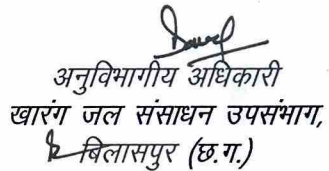 अनुविभागीय अधिकारी
खारंग जल संसाधन उपसंभाग,
बिलासपुर (छ.ग.)